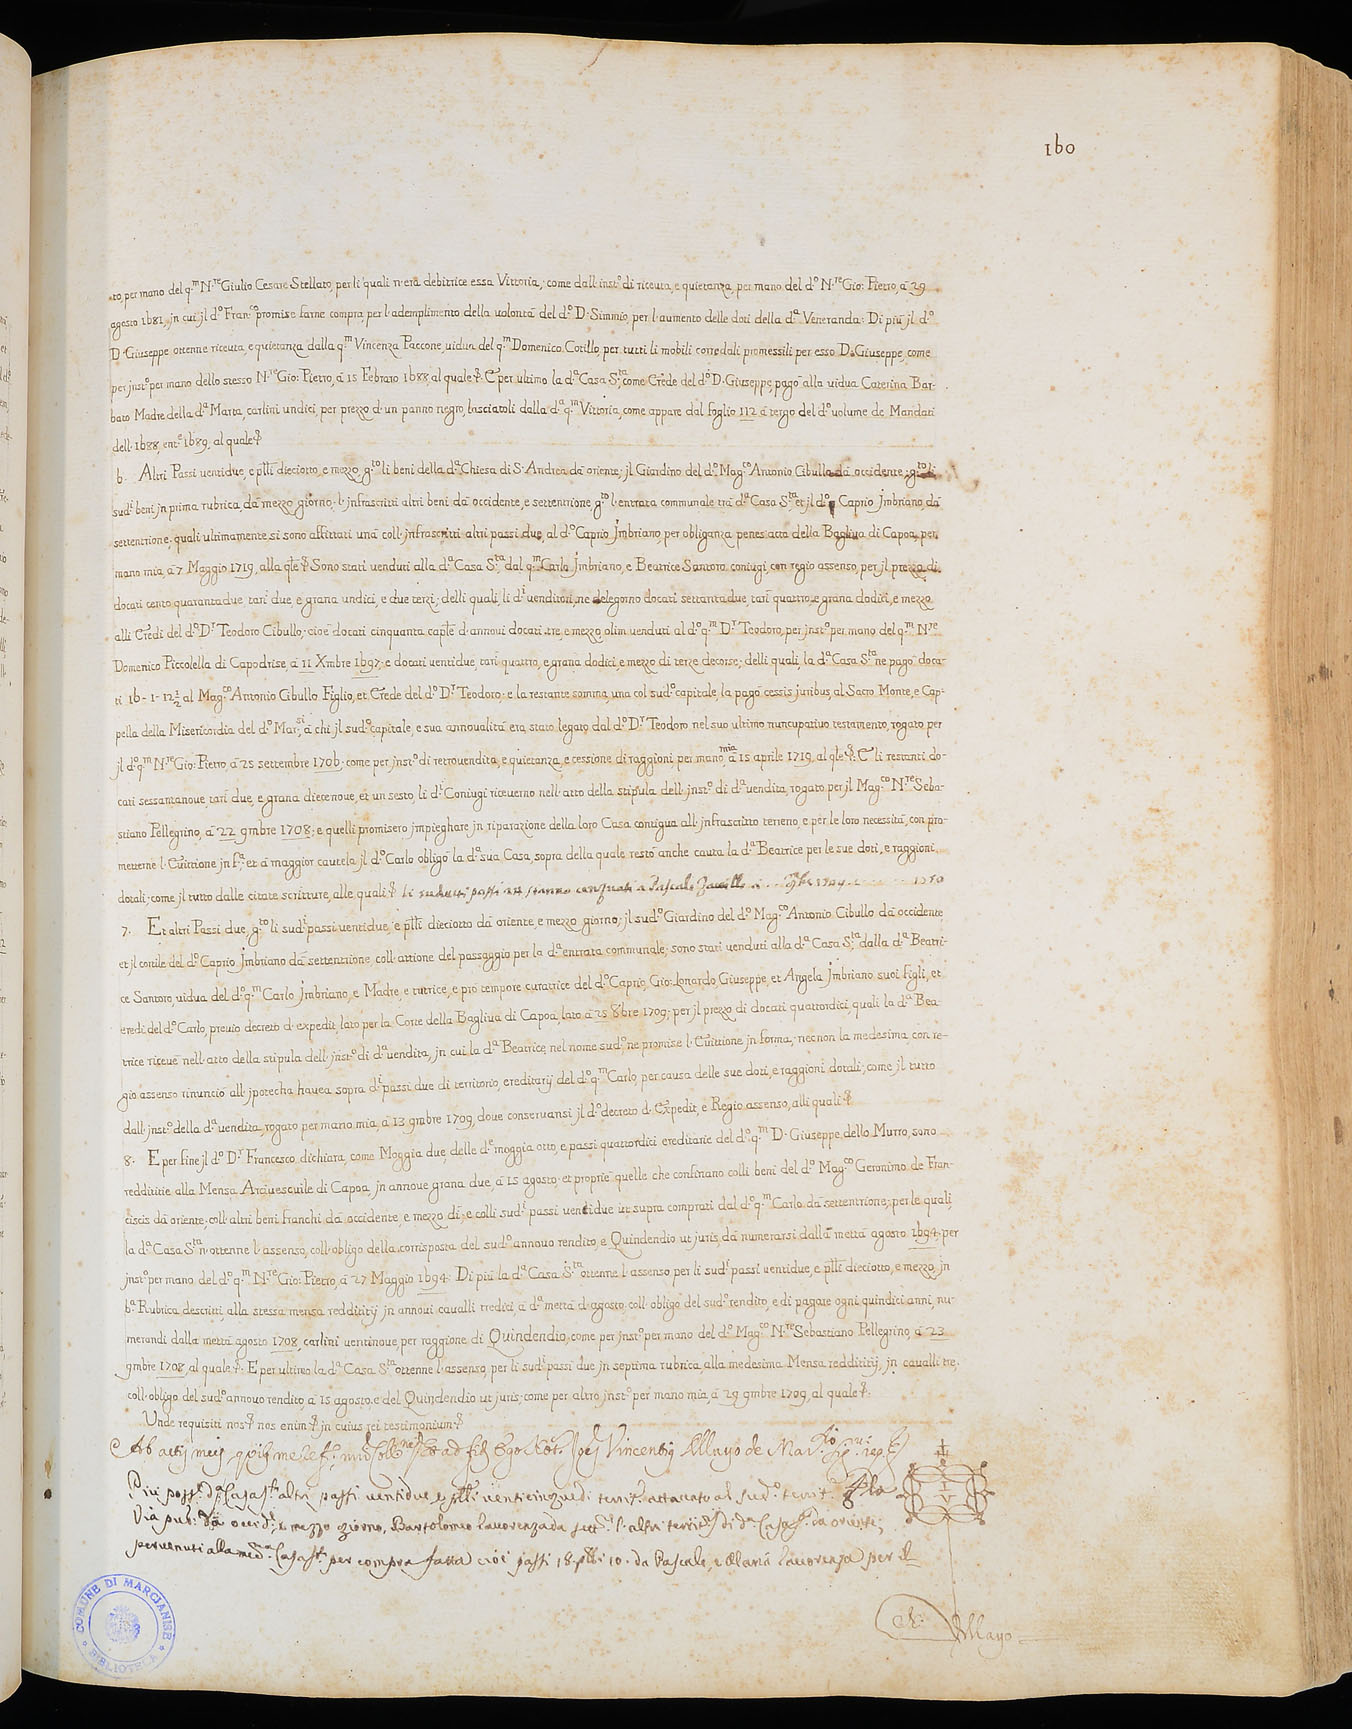 160
to, per mano del q.m N.re Giulio Cesare Stellato, per li quali n'era debitrice essa Vittoria; come dall'inst.o di riceuta, e quietanza, per mano del d.o N.re Gio: Pietro, à 29
agosto 1681, jn cui jl d.o Fran.co promise farne compra, per l'adempimento della uolontà del d.o D. Simmio, per l'aumento delle doti della d.a Veneranda: Di più jl d.o
D. Giuseppe ottenne riceuta, e quietanza dalla q.m Vincenza Paccone, uidua del q.m Domenico Cotillo, per tutti li mobili corredali promessili per esso D. Giuseppe, come
per jnst.o per mano dello stesso N.re Gio: Pietro, à 15 Febraro 1688, al quale &. E per ultimo la d.a Casa S.ta come Erede del d.o D. Giuseppe, pagò alla uidua Caterina Bar-
bato Madre della d.a Marta, carlini undici, per prezzo d'un panno negro, lasciatoli dalla d.a q.m Vittoria, come appare dal foglio 112 à tergo del d.o volume de Mandati
dell'1688, ent.e 1689, al quale &
6. Altri Passi uentidue, e p̄ssi dieciotto, e mezzo, g.to li beni della d.a Chiesa di S. Andrea dà oriente; jl Giardino del d.o Mag.co Antonio Cibullo dà occidente; g.to li
sud.i beni jn prima rubrica, dà mezzo giorno; l'jnfrascritti altri beni dà occidente, e settentrione, g.to l'entrata communale trà d.a Casa S.ta et jl d.o Caprio Jmbriano, dà
settentrione; quali ultimamente si sono affittati unà coll'jnfrascritti altri passi due, al d.o Caprio Jmbriano, per obliganza penes acta della Bagliua di Capoa, per
mano mia, à 7 Maggio 1719, alla q̄le & Sono stati venduti alla d.a Casa S.ta, dal q.m Carlo Jmbriano, e Beatrice Santoro coniugi, con regio assenso, per jl prezzo di
docati cento quarantadue tarì due, e grana undici, e due terzi; delli quali, li d.i uenditori, ne delegorno docati settantadue, tarì quattro, e grana dodici, e mezzo
alli Eredi del d.o D.r Teodoro Cibullo; cioè docati cinquanta cap̄le d'annoui docati tre, e mezzo, olim venduti al d.o q.m D.r Teodoro, per jnst.o per mano del q.m N.re
Domenico Piccolella di Capodrise, à 11 Xmbre 1697; e docati uentidue, tarì quattro, e grana dodici, e mezzo di terze decorse; delli quali, la d.a Casa S.ta ne pagò doca-
ti 16-1-12½ al Mag.co Antonio Cibullo Figlio, et Erede del d.o D.r Teodoro; e la restante somma, una col sud.o capitale, la pagò cessis juribus, al Sacro Monte, e Cap-
pella della Misericordia del d.o Mar.si, à chi jl sud.o capitale, e sua annoualità era stato legato dal d.o D.r Teodoro nel suo ultimo nuncupatiuo testamento, rogato per
jl d.o q.m N.re Gio: Pietro, à 25 settembre 1706: come per jnst.o di retrouendita, e quietanza, e cessione di raggioni, per mano mia à 15 aprile 1719, al q̄le &: E li restanti do-
cati sessantanoue, tarì due, e grana diecenoue, et un sesto, li d.i Coniugi riceuerno nell'atto della stipula dell'jnst.o di d.a vendita, rogato per jl Mag.co N.re Seba-
stiano Pellegrino, à 22 9mbre 1708; e quelli promisero jmpieghare jn riparazione della loro Casa contigua all'jnfrascritto terreno, e per le loro necessità, con pro-
metterne l'Euittione jn f.a; et à maggior cautela jl d.o Carlo obligò la d.a sua Casa, sopra della quale restò anche cauta la d.a Beatrice per le sue doti, e raggioni
dotali; come jl tutto dalle citate scritture, alle quali &
7. Et altri Passi due, g.to li sud.i passi uentidue, e p̄ssi dieciotto dà oriente, e mezzo giorno; jl sud.o Giardino del d.o Mag.co Antonio Cibullo dà occidente
et jl cortile del d.o Caprio Jmbriano dà settentrione, coll'attione del passaggio per la d.a entrata communale; sono stati uenduti alla d.a Casa S.ta dalla d.a Beatri-
ce Santoro, uidua del d.o q.m Carlo Jmbriano, e Madre, e tutrice, e prò tempore curatrice del d.o Caprio, Gio: Lonardo, Giuseppe, et Angela Jmbriano suoi figli, et
eredi del d.o Carlo, preuio decreto d'expedit, lato per la Corte della Bagliua di Capoa, lato à 25 8bre 1709; per jl prezzo di docati quattordici, quali la d.a Bea-
trice riceuè nell'atto della stipula dell'jnst.o di d.a vendita, jn cui la d.a Beatrice, nel nome sud.o, ne promise l'Euittione jn forma; necnon la medesima, con re-
gio assenso rinunciò all'jpotecha hauea sopra d.i passi due di territorio, ereditarij del d.o q.m Carlo, per causa delle sue doti, e raggioni dotali; come jl tutto
dall'jnst.o della d.a vendita, rogato per mano mia, à 13 9mbre 1709, doue conseruansi jl d.o decreto d'Expedit, e Regio assenso, alli quali &
8. E per fine jl d.o D.r Francesco dichiara, come Moggia due, delle d.e moggia otto, e passi quattordici ereditarie del d.o q.m D. Giuseppe dello Murro, sono
reddititie alla Mensa Arciuescuile di Capoa, jn annoue grana due, à 15 agosto; et propriè quelle che confinano colli beni del d.o Mag.co Geronimo de Fran-
ciscis dà oriente; coll'altri beni franchi dà occidente, e mezzo dì; e colli sud.i passi uentidue ut supra comprati dal d.o q.m Carlo dà settentrione; per le quali,
la d.a Casa S.ta n'ottenne l'assenso, coll'obligo della corrisposta del sud.o annouo rendito, e Quindendio ut juris, dà numerarsi dalla mettà agosto 1694, per
jnst.o per mano del d.o q.m N.re Gio: Pietro, à 27 Maggio 1694: Di più la d.a Casa S.ta ottenne l'assenso per li sud.i passi uentidue, e p̄ssi dieciotto, e mezzo, jn
6.a Rubrica descritti, alla stessa mensa reddititij jn annoui caualli tredici à d.a mettà d'agosto, coll'obligo del sud.o rendito, e di pagare ogni quindici anni, nu-
merandi dalla mettà agosto 1708, carlini uentinoue per raggione di Quindendio, come per jnst.o per mano del d.o Mag.co N.re Sebastiano Pellegrino, à 23
9mbre 1708, al quale &: E per ultimo la d.a Casa S.ta ottenne l'assenso, per li sud.i passi due jn septima rubrica, alla medesima Mensa reddititij, jn caualli tre,
coll'obligo del sud.o annouo rendito, à 15 agosto, e del Quindendio ut juris; come per altro jnst.o per mano mia, à 29 9mbre 1709, al quale &:
Unde requisiti nos & nos enim & jn cuius rei testimonium &
Ab actis meis Ego Not. Vincentius Mayo de Mar.
Più d.a Casa S.ta altri passi uentidue, e uenticinque di territ.o attaccato al sud.o territ.o
Via pub.a dà occid.e e mezzo giorno, Bartolomeo Lauorenza da sett.e l'altri territ.i di d.a Casa S.ta da oriente;
peruenuti alla med.a Casa S.ta per compra fatta cioè passi 18 10 da Pascale, e Maria Lauorenza per il
N. Mayo
COMUNE DI MARCIANISE
BIBLIOTECA